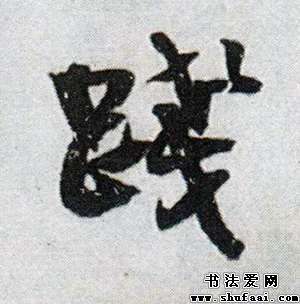 踐
书法爱网
www.shufaai.com